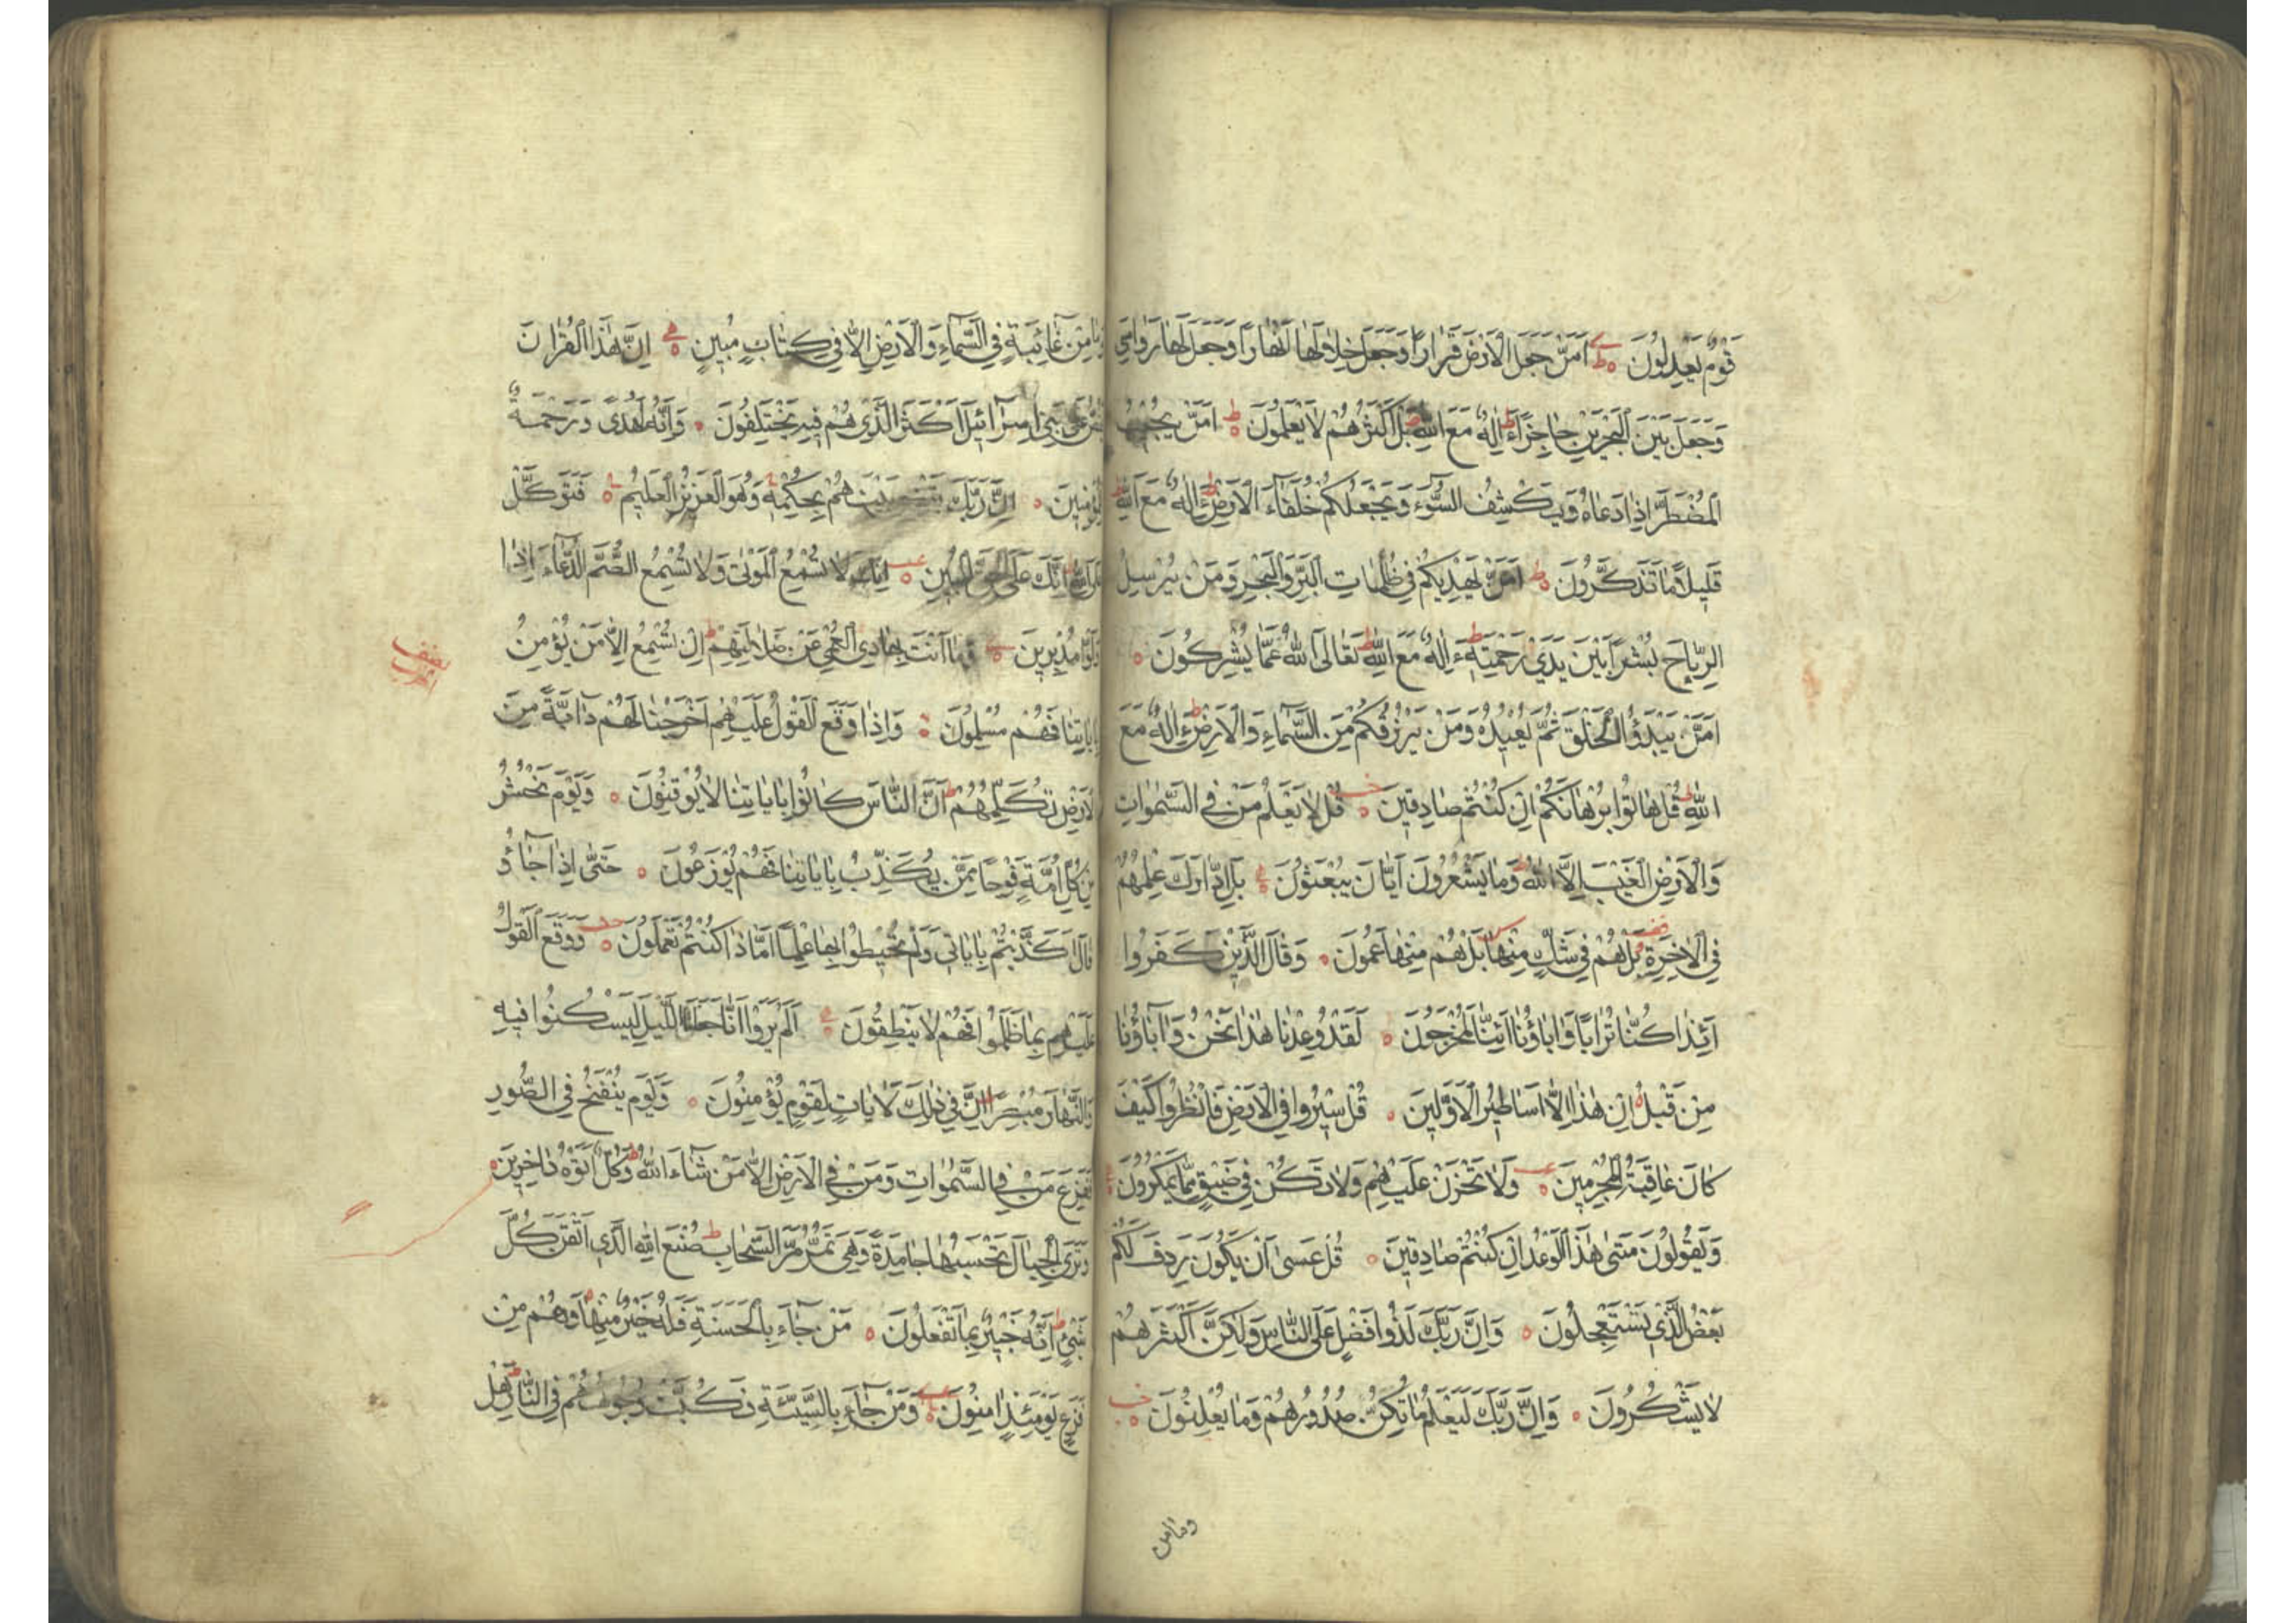 قَوْمٌ يَعْدِلُونَ اَمَّنْ جَعَلَ الْاَرْضَ قَرَارًا وَجَعَلَ خِلَالَهَا اَنْهَارًا وَجَعَلَ لَهَا رَوَاسِيَ
وَجَعَلَ بَيْنَ الْبَحْرَيْنِ حَاجِزًا ءَاِلٰهٌ مَعَ اللّٰهِ بَلْ اَكْثَرُهُمْ لَا يَعْلَمُونَ اَمَّنْ يُجِيبُ
الْمُضْطَرَّ اِذَا دَعَاهُ وَيَكْشِفُ السُّوٓءَ وَيَجْعَلُكُمْ خُلَفَآءَ الْاَرْضِ ءَاِلٰهٌ مَعَ اللّٰهِ
قَلِيلًا مَا تَذَكَّرُونَ اَمَّنْ يَهْدِيكُمْ فِي ظُلُمَاتِ الْبَرِّ وَالْبَحْرِ وَمَنْ يُرْسِلُ
الرِّيَاحَ بُشْرًا بَيْنَ يَدَيْ رَحْمَتِهِ ءَاِلٰهٌ مَعَ اللّٰهِ تَعَالَى اللّٰهُ عَمَّا يُشْرِكُونَ
اَمَّنْ يَبْدَؤُا الْخَلْقَ ثُمَّ يُعِيدُهُ وَمَنْ يَرْزُقُكُمْ مِنَ السَّمَآءِ وَالْاَرْضِ ءَاِلٰهٌ مَعَ
اللّٰهِ قُلْ هَاتُوا بُرْهَانَكُمْ اِنْ كُنْتُمْ صَادِقِينَ قُلْ لَا يَعْلَمُ مَنْ فِي السَّمٰوَاتِ
وَالْاَرْضِ الْغَيْبَ اِلَّا اللّٰهُ وَمَا يَشْعُرُونَ اَيَّانَ يُبْعَثُونَ بَلِ ادَّارَكَ عِلْمُهُمْ
فِي الْاٰخِرَةِ بَلْ هُمْ فِي شَكٍّ مِنْهَا بَلْ هُمْ مِنْهَا عَمُونَ وَقَالَ الَّذِينَ كَفَرُوا
اَئِذَا كُنَّا تُرَابًا وَاٰبَاؤُنَا اَئِنَّا لَمُخْرَجُونَ لَقَدْ وُعِدْنَا هٰذَا نَحْنُ وَاٰبَاؤُنَا
مِنْ قَبْلُ اِنْ هٰذَا اِلَّا اَسَاطِيرُ الْاَوَّلِينَ قُلْ سِيرُوا فِي الْاَرْضِ فَانْظُرُوا كَيْفَ
كَانَ عَاقِبَةُ الْمُجْرِمِينَ وَلَا تَحْزَنْ عَلَيْهِمْ وَلَا تَكُنْ فِي ضَيْقٍ مِمَّا يَمْكُرُونَ
وَيَقُولُونَ مَتٰى هٰذَا الْوَعْدُ اِنْ كُنْتُمْ صَادِقِينَ قُلْ عَسٰى اَنْ يَكُونَ رَدِفَ لَكُمْ
بَعْضُ الَّذِي تَسْتَعْجِلُونَ وَاِنَّ رَبَّكَ لَذُو فَضْلٍ عَلَى النَّاسِ وَلٰكِنَّ اَكْثَرَهُمْ
لَا يَشْكُرُونَ وَاِنَّ رَبَّكَ لَيَعْلَمُ مَا تُكِنُّ صُدُورُهُمْ وَمَا يُعْلِنُونَ
وما من
وَمَا مِنْ غَآئِبَةٍ فِي السَّمَآءِ وَالْاَرْضِ اِلَّا فِي كِتَابٍ مُبِينٍ اِنَّ هٰذَا الْقُرْاٰنَ
يَقُصُّ عَلٰى بَنِي اِسْرَآئِيلَ اَكْثَرَ الَّذِي هُمْ فِيهِ يَخْتَلِفُونَ وَاِنَّهُ لَهُدًى وَرَحْمَةٌ
لِلْمُؤْمِنِينَ اِنَّ رَبَّكَ يَقْضِي بَيْنَهُمْ بِحُكْمِهِ وَهُوَ الْعَزِيزُ الْعَلِيمُ فَتَوَكَّلْ
عَلَى اللّٰهِ اِنَّكَ عَلَى الْحَقِّ الْمُبِينِ اِنَّكَ لَا تُسْمِعُ الْمَوْتٰى وَلَا تُسْمِعُ الصُّمَّ الدُّعَآءَ اِذَا
وَلَّوْا مُدْبِرِينَ وَمَا اَنْتَ بِهَادِي الْعُمْيِ عَنْ ضَلَالَتِهِمْ اِنْ تُسْمِعُ اِلَّا مَنْ يُؤْمِنُ
نصف
بِاٰيَاتِنَا فَهُمْ مُسْلِمُونَ وَاِذَا وَقَعَ الْقَوْلُ عَلَيْهِمْ اَخْرَجْنَا لَهُمْ دَآبَّةً مِنَ
الْاَرْضِ تُكَلِّمُهُمْ اَنَّ النَّاسَ كَانُوا بِاٰيَاتِنَا لَا يُوقِنُونَ وَيَوْمَ نَحْشُرُ
مِنْ كُلِّ اُمَّةٍ فَوْجًا مِمَّنْ يُكَذِّبُ بِاٰيَاتِنَا فَهُمْ يُوزَعُونَ حَتّٰى اِذَا جَآؤُ
قَالَ اَكَذَّبْتُمْ بِاٰيَاتِي وَلَمْ تُحِيطُوا بِهَا عِلْمًا اَمَّاذَا كُنْتُمْ تَعْمَلُونَ وَوَقَعَ الْقَوْلُ
عَلَيْهِمْ بِمَا ظَلَمُوا فَهُمْ لَا يَنْطِقُونَ اَلَمْ يَرَوْا اَنَّا جَعَلْنَا اللَّيْلَ لِيَسْكُنُوا فِيهِ
وَالنَّهَارَ مُبْصِرًا اِنَّ فِي ذٰلِكَ لَاٰيَاتٍ لِقَوْمٍ يُؤْمِنُونَ وَيَوْمَ يُنْفَخُ فِي الصُّورِ
فَفَزِعَ مَنْ فِي السَّمٰوَاتِ وَمَنْ فِي الْاَرْضِ اِلَّا مَنْ شَآءَ اللّٰهُ وَكُلٌّ اَتَوْهُ دَاخِرِينَ
وَتَرَى الْجِبَالَ تَحْسَبُهَا جَامِدَةً وَهِيَ تَمُرُّ مَرَّ السَّحَابِ صُنْعَ اللّٰهِ الَّذِي اَتْقَنَ كُلَّ
شَيْءٍ اِنَّهُ خَبِيرٌ بِمَا تَفْعَلُونَ مَنْ جَآءَ بِالْحَسَنَةِ فَلَهُ خَيْرٌ مِنْهَا وَهُمْ مِنْ
فَزَعٍ يَوْمَئِذٍ اٰمِنُونَ وَمَنْ جَآءَ بِالسَّيِّئَةِ فَكُبَّتْ وُجُوهُهُمْ فِي النَّارِ هَلْ